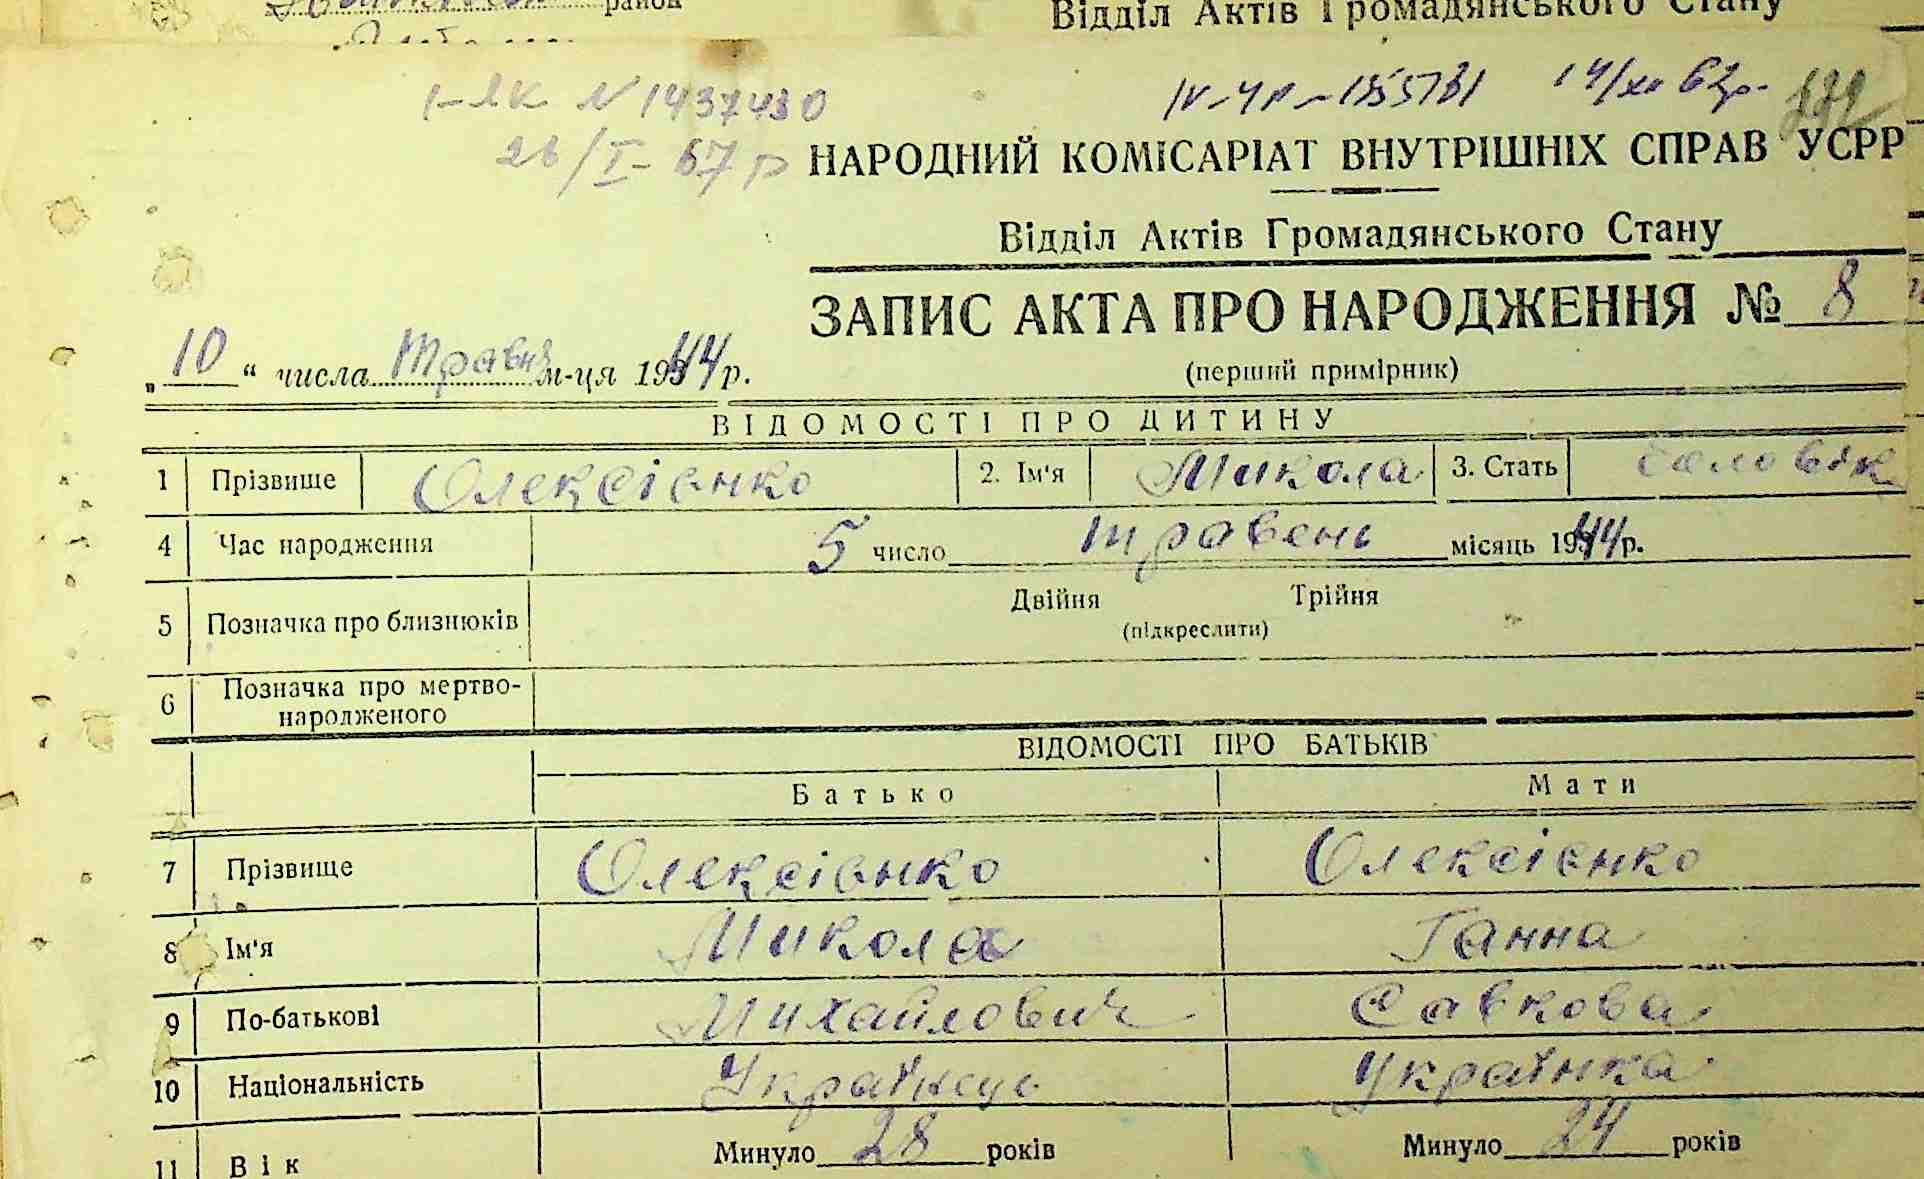 район
Відділ Актів Громадянського Стану
І-ЯК N 1437430
26/I-67р
14/XII 62р.
НАРОДНИЙ КОМІСАРІАТ ВНУТРІШНІХ СПРАВ УСРР
Відділ Актів Громадянського Стану
ЗАПИС АКТА ПРО НАРОДЖЕННЯ № 8
„10“ числа Травня м-ця 1944 р.
(перший примірник)
ВІДОМОСТІ ПРО ДИТИНУ
1 Прізвище Олексієнко 2. Ім'я Микола 3. Стать Чоловік
4 Час народження 5 число травень місяць 1944 р.
5 Позначка про близнюків Двійня Трійня
(підкреслити)
6 Позначка про мертво-
народженого
ВІДОМОСТІ ПРО БАТЬКІВ
Батько Мати
7 Прізвище Олексієнко Олексієнко
8 Ім'я Микола Ганна
9 По-батькові Михайлович Савкова
10 Національність Українець Українка
11 Вік Минуло 28 років Минуло 24 років